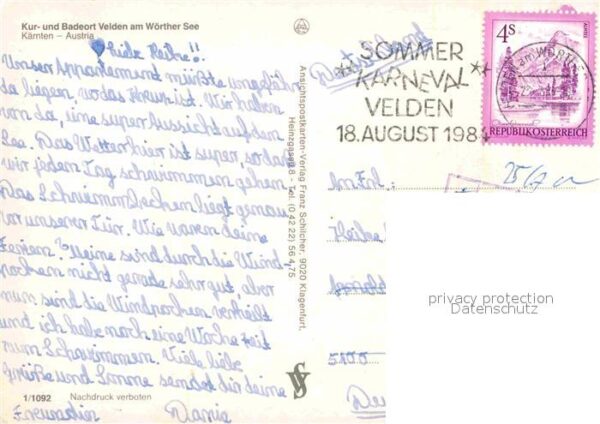 Kur- und Badeort Velden am Wörther See
Kärnten – Austria
Liebe Heike!!
Unser Appartement müßte ungefähr
da liegen, wo das Kreuz ist. Wir haben
von da, eine super Aussicht auf den
See. Das Wetter hier ist super, so daß
wir jeden Tag schwimmen gehen.
Das Schwimmbecken liegt genau
vor unserer Tür. Wie waren deine
Ferien? Meine sind durch die Wind-
pocken nicht gerade sehr gut, aber
nun sind die Windpocken verheilt
und ich habe noch eine Woche Zeit
zum Schwimmen. Viele liebe
Grüße und Sonne sendet dir deine
Freundin
1/1092 Nachdruck verboten
Ansichtspostkarten-Verlag Franz Schilcher, 9020 Klagenfurt,
Heinzgasse 8 - Tel. (0 42 22) 56 4 75
SOMMER
KARNEVAL
VELDEN
18. AUGUST 1984
4S
REPUBLIK ÖSTERREICH
An Frl.
Heike
privacy protection
Datenschutz